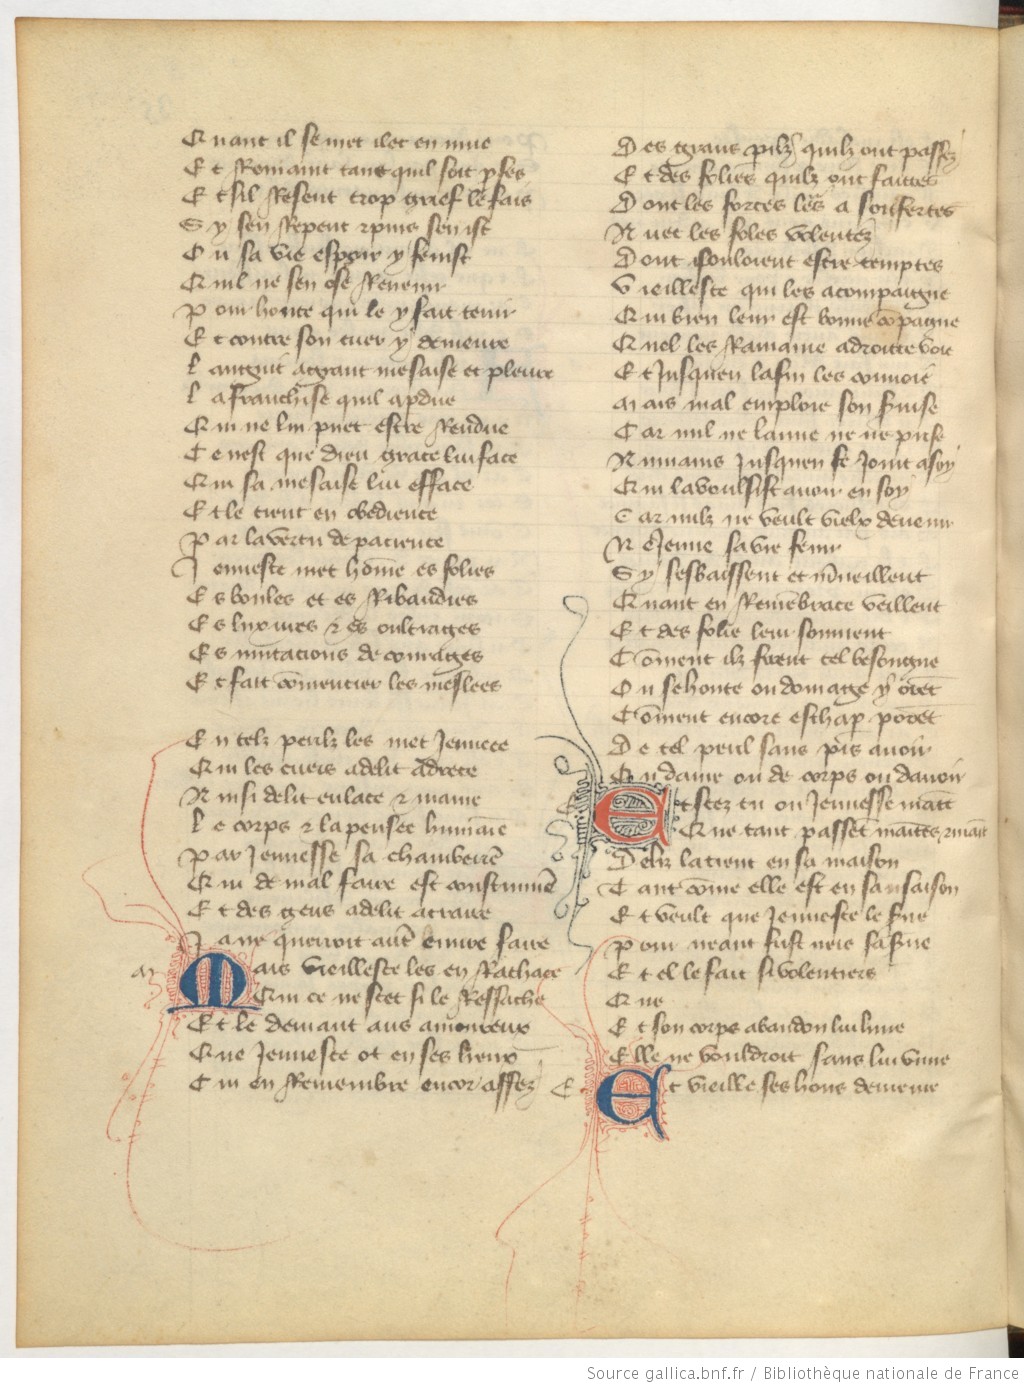 Quant il se met ilec en mue
Et Remaint tant quil soit yssés
Et sil Resent trop grief le fais
Sy sen Repent 2 puis sen ist
Ou sa vie espoir y fenist
Quil ne sen ose Revenir
Pour honte qui le y fait tenir
Et contre son cuer y demeure
La languit a grant mesaise et pleure
La franchise quil a pdue
Qui ne lui puet estre Rendue
Ce nest que dieu grace lui face
Qui sa mesaise lui efface
Et le tient en obedience
Par la vertu de pacience
Jeunesce met home es folies
Es boules et es Ribaudies
Es luxures 2 es oultrages
Es mutacions de courages
Et fait comencier les meslees
En telz perilz les met Jeunece
Qui les cuers a delit adrece
Ainsi delit enlace 2 maine
Le corps 2 la pensee humaine
Par Jeunesse sa chamberiere
Qui de mal faire est coustumiere
Et des gens a delit attraire
Ja ne querroit autre euvre faire
Mais vieillesce les en Rachace
Qui ce ne scet si le Ressache
Et le demant aus amoureux
Que Jeunesce ot en ses lieux
Cui en Remembre encor assez
Des grans pilz quilz ont passez
Et des folies quilz ont faittes
Dont les forces leur a soufertes
Avec les foles volentez
Dont souloient estre temptes
Vieillesce qui les acompaigne
Qui bien leur est bonne copagne
Quel les Ramaine a droitte voie
Et Jusquen la fin les convoie
Mais mal emploie son servise
Car nul ne laime ne ne prise
Au mains Jusquen se Joint a soy
Qui la voulsist avoir en soy
Car nulz ne veult vielx devenir
Ne Jeune sa vie fenir
Sy sesbaissent et mveillent
Quant en Remebrace veillent
Et des folie leur sonnient
Coment ilz furent tel besongne
Ou se honte ou domage y orent
Coment encore eschap porent
De tel peril sans pis avoir
Ou dame ou de corps ou davoir
Et scez tu ou Jeunesse maint
Que tant passent maintes 2 maint
Delit la tient en sa maison
Tant come elle est en sa saison
Et veult que Jeunesce le serve
Pour neant fust neis sa serve
Et el le fait si volentiers
Que
Et son corps abandon lui livre
Elle ne vouldroit sans lui vivre
Et vieille ses hons demeure